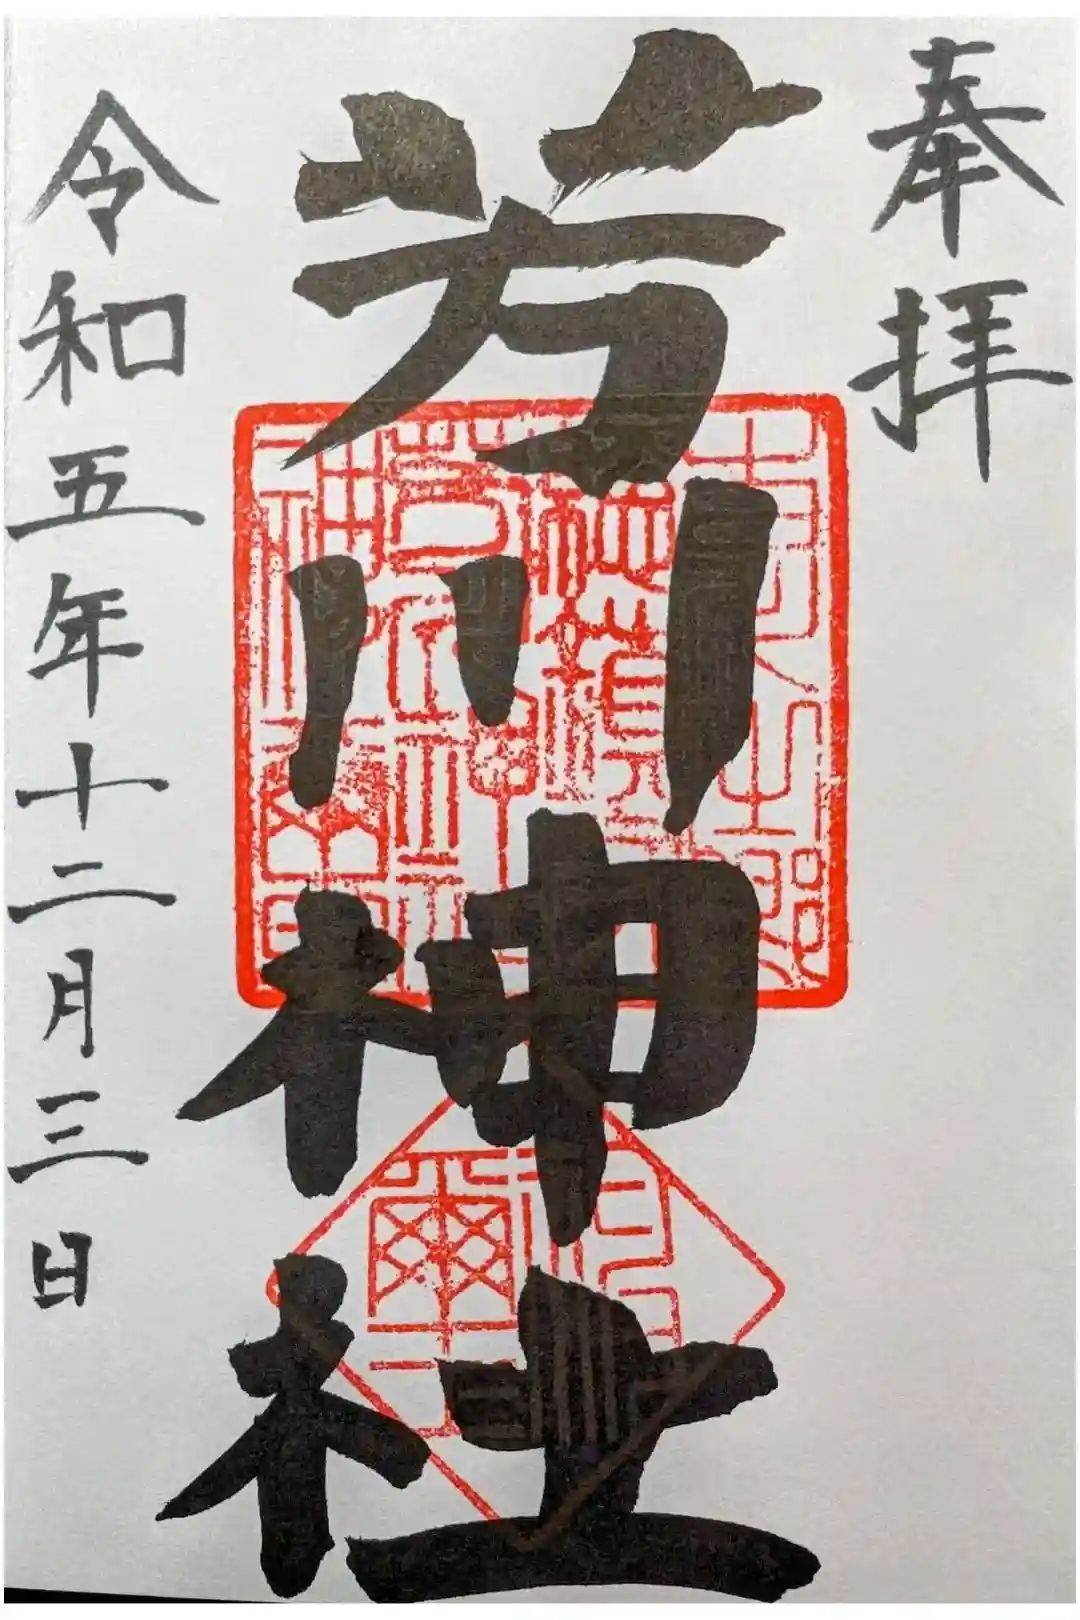 奉拝
芳川神社
令和五年十二月三日